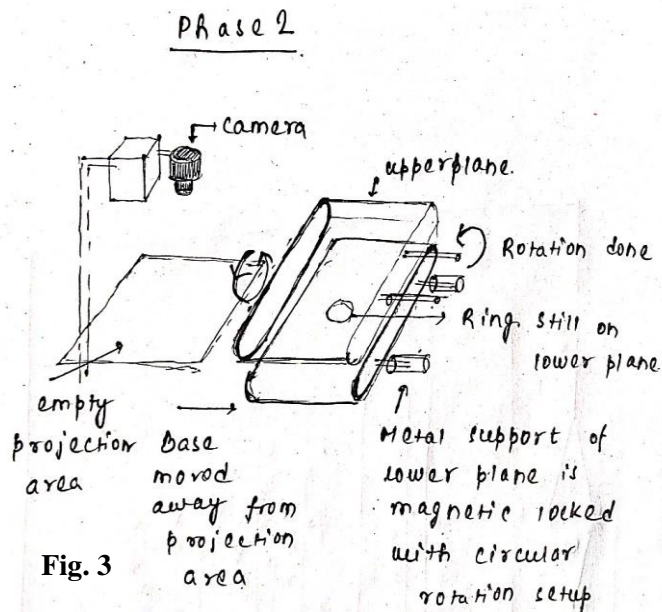 Phase 2
camera
upperplane.
Rotation done
Ring still on
lower plane
empty
projection
area
Base
moved
away from
projection
area
Metal support of
lower plane is
magnetic locked
with circular
rotation setup
Fig. 3